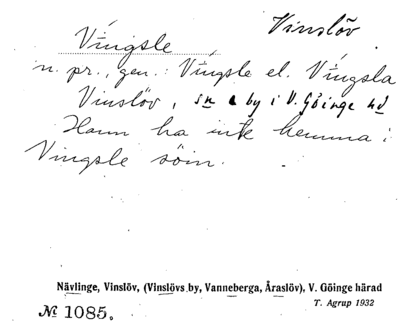 Vinslöv
Vingsle
n. pr., gen.: Vingsle el. Vingsla
Vinslöv, sn o by i V. Göinge hd
Hann ha inte hemma i
Vingsle söin.
Nävlinge, Vinslöv, (Vinslövs by, Vanneberga, Åraslöv), V. Göinge härad
T. Agrup 1932
№ 1085.